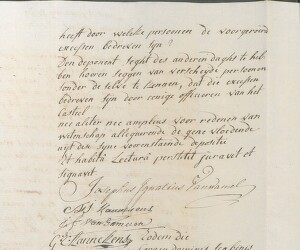 heeft door welcke persoonen de voorgeroerde
excessen bedreven sijn?
Den deponent seght des anderen daghs te heb-
ben hooren seggen van verscheyde persoonen
sonder de selve te kennen, dat die excessen
bedreven sijn door eenige officieren van het
casteel
nec aliter nec amplius voor redenen van
wetenschap allegueerende de geae vloeiende
uijt den sijne voorenstaende depositie
Et habitâ Lecturâ perstitit juravit et
signavit
Josephus Ignatius
Eodem die